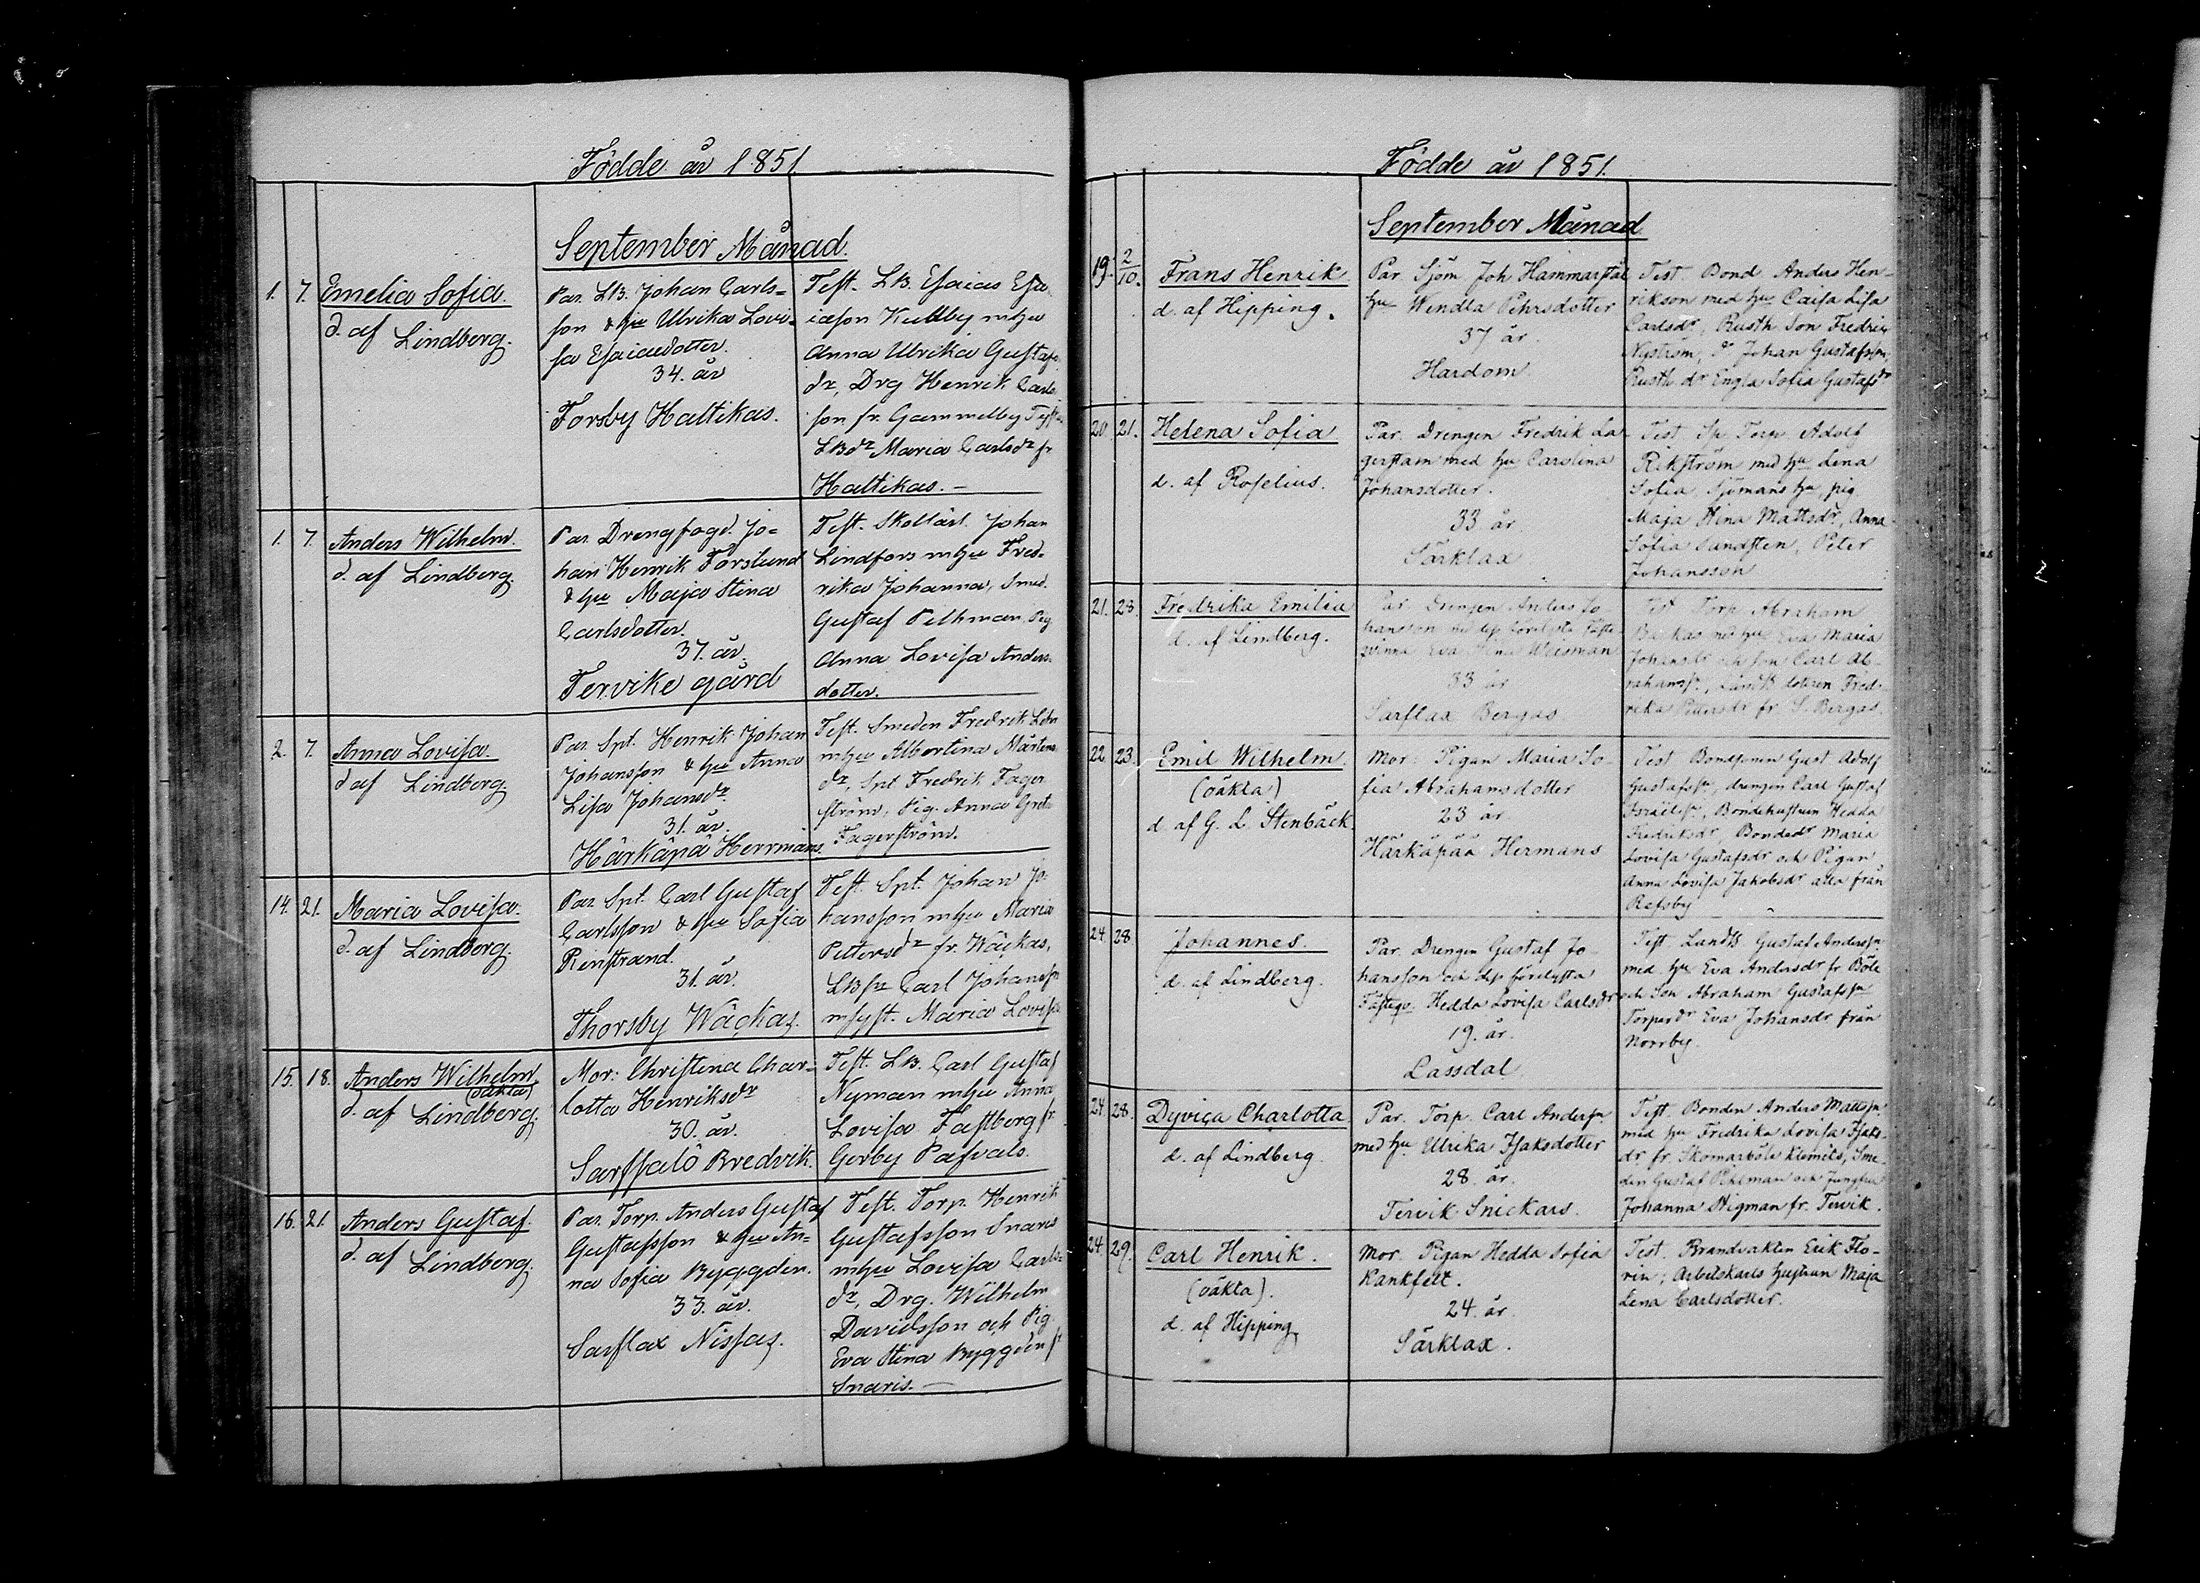 Födde år 1851
September Månad.
1. 7. Emelia Sofia.
d. af Lindberg.
Par. LB. Johan Carls-
son & hu Ulrika Lovi-
sa Esaiaedotter.
34. år
Forsby Hattikas.
Test. LB. Esaias Esa
iason Kullby mhu
Anna Ulrika Gustafs
dr, Drg Henrik Carls
son fr. Gammelby
LBdr Maria Carlsdr fr
Hattikas.-
1. 7. Anders Wilhelm.
d. af Lindberg.
Par Drengfogd. Jo-
han Henrik Forslund
& hu Maja Stina
Carlsdotter.
37. år.
Tervike gård
Test. Skollär. Johan
Lindfors mhu Fred-
rika Johanna, Smed.
Gustaf Pelhman, Pig
Anna Lovisa Anders
dotter.
2. 7. Anna Lovisa.
d af Lindberg.
Par Spt. Henrik Johan
Johansson & hu Anna
Lisa Johansdr.
31. år.
Härkäpä Herrmans.
Test. Smeden Fredrik
mhu Albertina Mårtens
dr, Spt Fredrik Fager
ström, Pig. Anna Greta
Fagerström.
14. 21. Maria Lovisa.
d. af Lindberg.
Par Spt. Carl Gustaf
Carlsson & hu Sofia
Renstrand.
31. år.
Thorsby Wäckas.
Test. Spt. Johan Jo-
hansson mhu Maria
Pettersdr fr. Wäckas,
LBsn Carl Johanss
m syst. Maria Lovisa
15. 18. Anders Wilhelm
(oäkta)
d. af Lindberg.
Mor: Christina Char-
lotta Henriksdr
30. år.
Sarfsalö Bredvik.
Test. LB. Carl Gustaf
Nyman mhu Anna
Lovisa Fastberg fr.
Gerby Pasvals.
16. 21. Anders Gustaf.
d. af Lindberg.
Par Torp. Anders Gustaf
Gustafsson & hu An-
na Sofia Byggden.
33. år.
Sarflax Nissas.
Test. Torp. Henrik
Gustafsson Snaris
mhu Lovisa Carls
dr, Drg. Wilhelm
Davidsson och Pig
Eva Stina Byggden fr
Snaris.-
Födde år 1851.
September Månad
19. 2/10. Frans Henrik
d. af Hipping.
Par. Sjöm Joh Hammarstål
hu Wendla Pehrsdotter
37 år.
Hardom
Test Bond Anders Hen-
rikson med hu Caisa Lisa
Carlsdr, Rusth Son Fredrik
Nyström, dr Johan Gustafsson,
Rusth dr Engla Sofia Gustafsdr
20 21. Helena Sofia
d. af Roselius.
Par. Drengen Fredrik La-
gerstam med hu Carolina
Johansdotter.
33 år.
Särklax
Test Sp Torp Adolf
Rikström med hu Lena
Sofia, Sjömans hu, pig
Maja Stina Mattsdr, Anna
Sofia Sundsten, Peter
Johansson
21. 28. Fredrika Emilia
d. af Lindberg.
Par. Drengen Anders Jo
hansson med dess förelofta fäste
qvinna Eva Stina Weisman
33 år
Sarflax Bergas
Test Torp Abraham
Backas med hu Eva Maria
Johansdr och son Carl Ab-
rahamsn, Landb dotteren Fred-
rika Pettersdr fr S. Bergas.
22 23. Emil Wilhelm.
(oäkta)
d af G. L. Stenbäck
Mor: Pigan Maria So-
fia Abrahamsdotter
23 år
Härkäpää Hermans
Test Bondsonen Gust Adolf
Gustafssn, drengen Carl Gustaf
Israelsn, Bondehustrun Hedda
Fredriksdr, Bondedr Maria
Lovisa Gustafsdr och Pigan
Anna Lovisa Jakobsdr alla från
Refsby
24. 28. Johannes.
d. af Lindberg.
Par. Drengen Gustaf Jo-
hansson och dess förelofta
Fästeqv. Hedda Lovisa Carlsdr
19. år.
Lassdal
Test Landb Gustaf Anderssn
med hu Eva Andersdr fr Böle
och Son Abraham Gustafssn
Torpardr Eva Johansdr från
Norrby.
24. 28. Dyviça Charlotta
d. af Lindberg
Par. Torp. Carl Andersn
med hu Ulrika Isaksdotter
28. år.
Tervik Snickars.
Test. Bonden Anders Mattssn
med hu Fredrika Lovisa Isaks-
dr fr Skomarböle Klemets, Sme-
den Gustaf Pihlman och Jungfru
Johanna Stigman fr. Tervik.
24. 29. Carl Henrik.
(oäkta).
d. af Hipping
Mor. Pigan Hedda Sofia
Kankfelt.
24. år.
Särklax.
Test. Brandvakten Erik Flo-
rin; Arbetskarls hustrun Maja
Lena Carlsdotter.